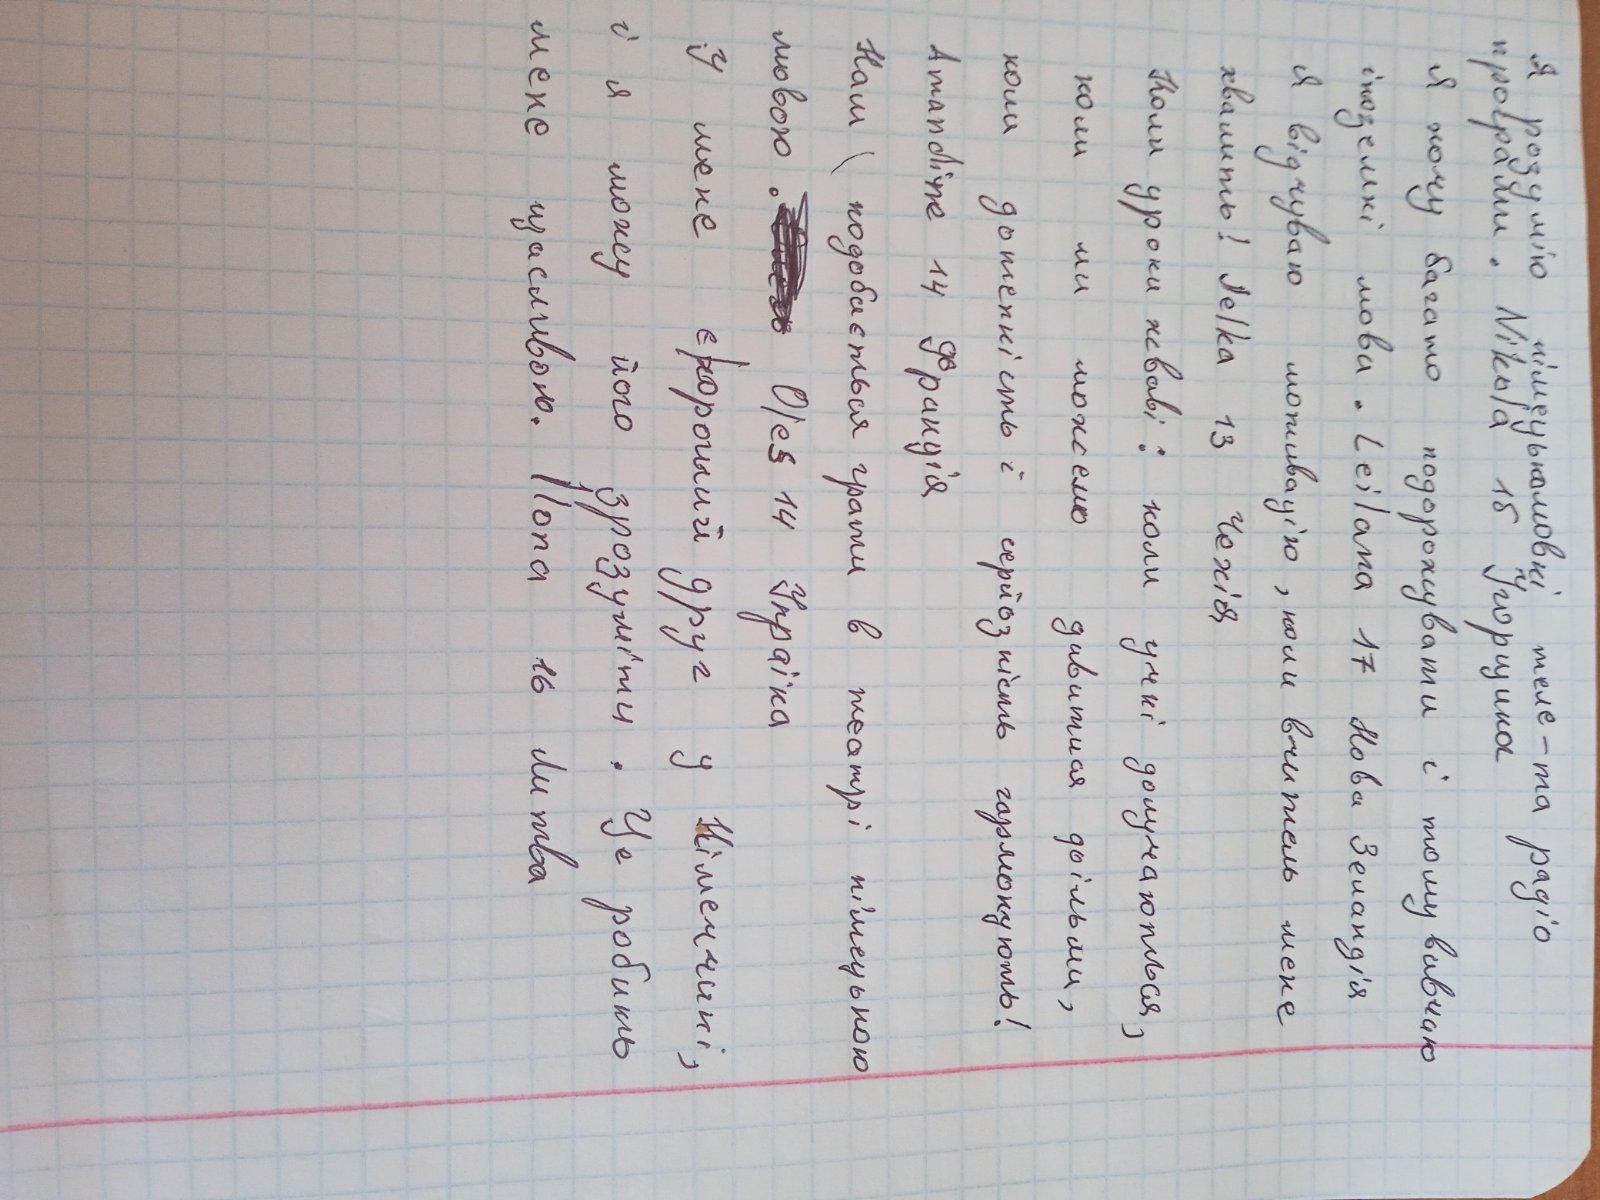 Я розумію німецькомовні теле-та радіо
програми. Nikola 15 Угорщина
Я хочу багато подорожувати і тому вивчаю
іноземні мови. Leilana 17 Нова Зеландія
Я відчуваю мотивацію, коли вчитель мене
хвалить! Nelka 13 Чехія
Коли уроки живаві: коли учні долучаються,
коли ми можемо дивитися фільми,
коли дотепність і серйозність гармонують!
Amandine 14 Франція
Нам подобається грати в театрі німецькою
мовою. Olesя 14 Україна
У мене є хороший друг у Німеччині,
і я можу його зрозуміти. Це робить
мене щасливою. Йопа 16 Литва